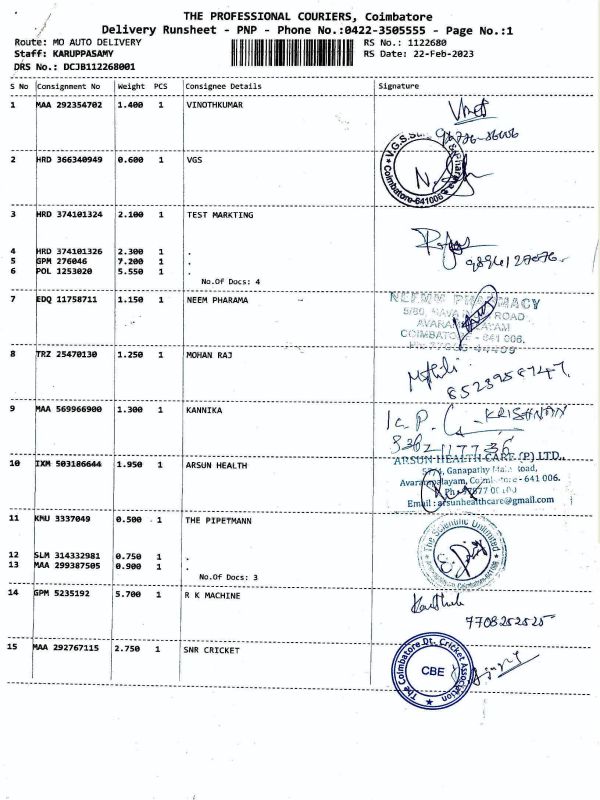 THE PROFESSIONAL COURIERS, Coimbatore
Delivery Runsheet - PNP - Phone No.:0422-3505555 - Page No.:1
Route: MO AUTO DELIVERY
RS No.: 1122680
Staff: KARUPPASAMY
RS Date: 22-Feb-2023
DRS No.: DCJB112268001
S No Consignment No Weight PCS Consignee Details Signature
1 MAA 292354702 1.400 1 VINOTHKUMAR
2 HRD 366340949 0.600 1 VGS
Coimbatore-641006
3 HRD 374101324 2.100 1 TEST MARKTING
4 HRD 374101326 2.300 1 .
5 GPM 276046 7.200 1 .
6 POL 1253020 5.550 1 .
No.Of Docs: 4
7 EDQ 11758711 1.150 1 NEEM PHARAMA
PHARMACY
ROAD
COIMBATORE - 641 006.
8 TRZ 25470130 1.250 1 MOHAN RAJ
9 MAA 569966900 1.300 1 KANNIKA
KRISHNAN
10 IXM 503186644 1.950 1 ARSUN HEALTH
ARSUN HEALTH CARE (P) LTD.,
Ganapathy
- 641 006.
Email : arsunhealthcare@gmail.com
11 KMU 3337049 0.500 1 THE PIPETMANN
The Scientific Unlimited
12 SLM 314332981 0.750 1 .
13 MAA 299387505 0.900 1 .
No.Of Docs: 3
14 GPM 5235192 5.700 1 R K MACHINE
7708252525
15 MAA 292767115 2.750 1 SNR CRICKET
The Coimbatore Dt. Cricket Association
CBE